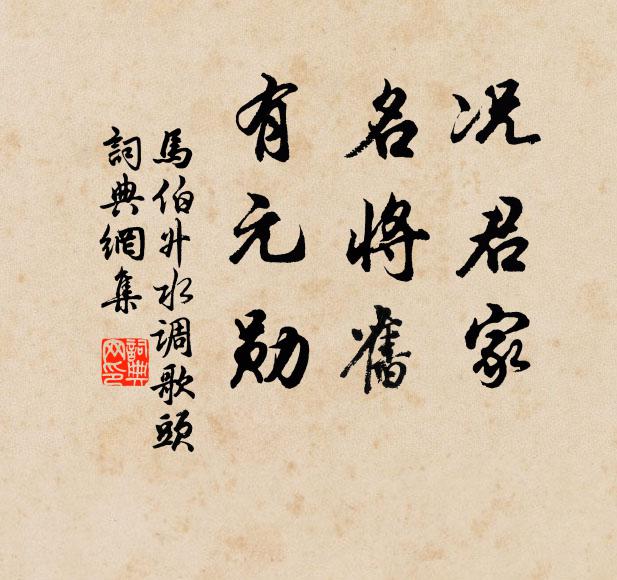 况君家
名将舊
有元勋
馬伯升水调歌頭
詞典網集
詞典
网印